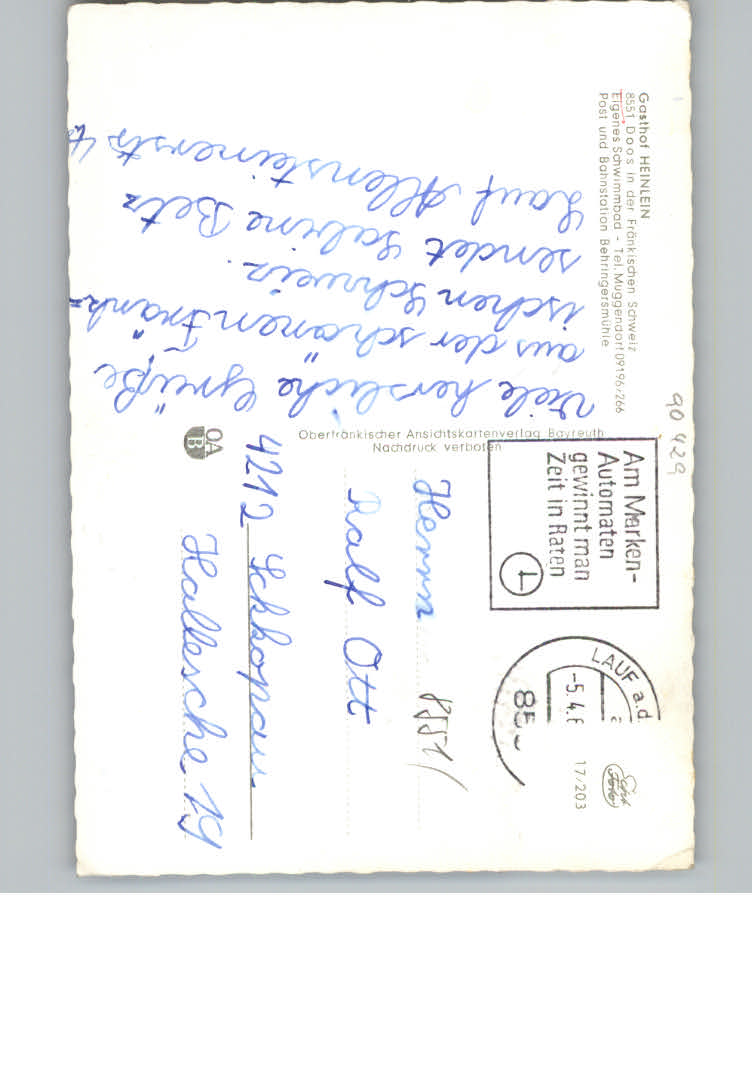 Gasthof HEINLEIN
8551 Doos in der Fränkischen Schweiz
Eigenes Schwimmbad - Tel. Muggendorf 09196/266
Post und Bahnstation Behringersmühle
Viele herzliche Grüße
aus der schönen Fränk=
ischen Schweiz.
sendet Sabine Betz
Lauf Allensteinerstr
Oberfränkischer Ansichtskartenverlag Bayreuth
Nachdruck verboten
OA
B
90 429
Am Marken-
Automaten
gewinnt man
Zeit in Raten
LAUF a.d.
-5.4.
a
17/203
8551/
Herrn
Ralf Ott
4212 Schkopau
Hallesche 19